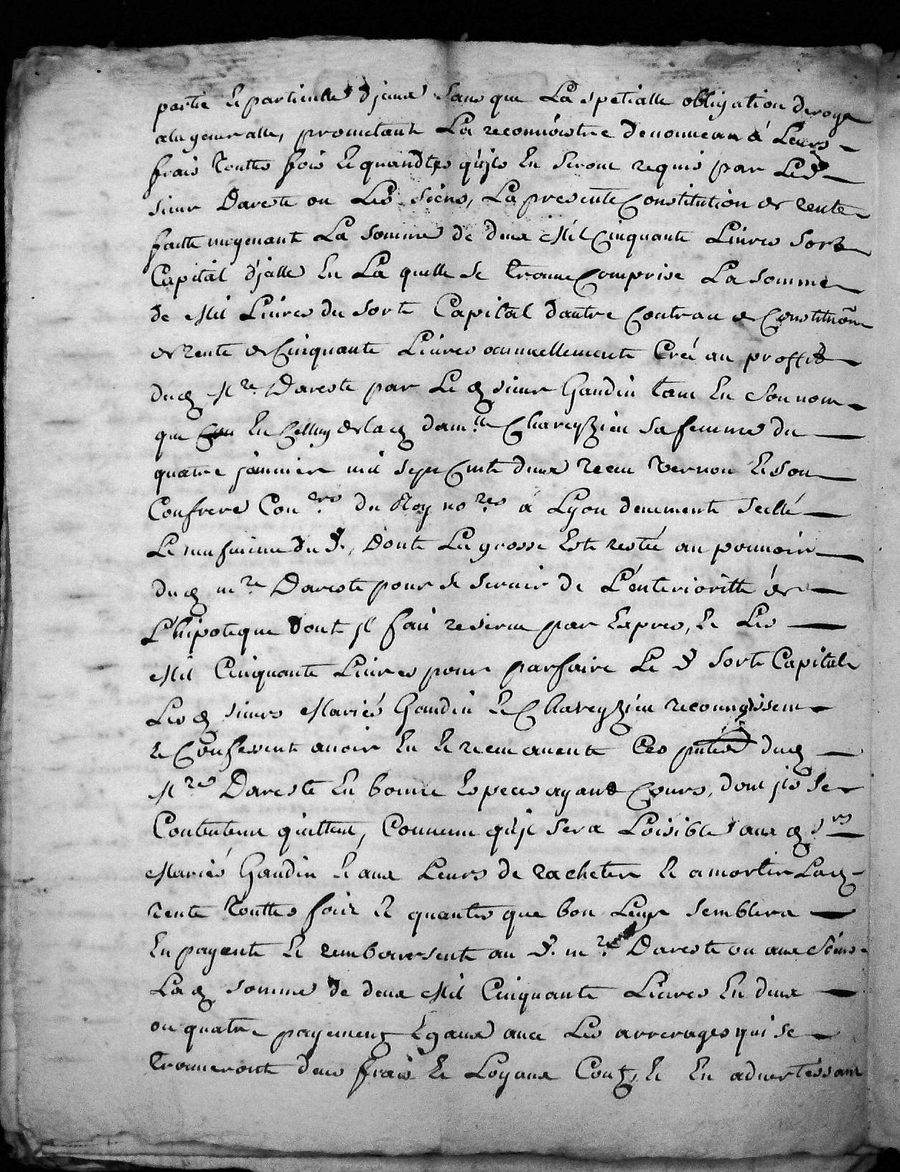 partie et particulle d'jceux sans que La spetialle obligation deroge
ala generalle, prometant La reconnoistre denouveau à Leurs
frais touttes fois et quandtes quils En seront requis par Led
sieur Dareste ou Les siens, La presente Constitution de rente
faitte moyenant La somme de deux Mil Cinquante Livres sort
Capital d'jcelle En La quelle se trouve Comprise La somme
de Mil Livres du sorte Capital dautre Contrau de Constituõn
de rente de Cinquante Livres annuellement Creé au proffit
dud Mre Dareste par Le d sieur Gaudin tant En son nom
que En Celluy de lad damlle Chareyzieu sa femme du
quatre janvier mil sept Cents deux receu Vernon et son
Confrere Conrs du Roy nores à Lyon deuement scellé
Le neufvieme du d., Dont La grosse Est restée au pouvoir
dud mre Dareste pour se servir de L'enterioritté de
L'hipoteque dont jl fait reserve par Expres, et Les
Mil Cinquante Livres pour parfaire Le d sort Capital
Les d sieurs Mariés Gaudin et Chareyzieu reconnoissent
et Confessent avoir Eu et receu avente Ces putes dud
Mre Dareste En bonne Especes ayant Cours, dont jls se
Contentent quittent, Convenu quil sera Loisible aux d srs
Mariés Gaudin et aux Leurs de racheter et amortir Lad
rente touttes fois et quantes que bon Leur semblera
En payant et remboursent au d. mre Dareste ou aux siens
La d somme de deux Mil Cinquante Livres En deux
ou quatre payement Egaux avec Les arrerages qui se
trouveront deus frais et Loyaux Couts, et En advertissant